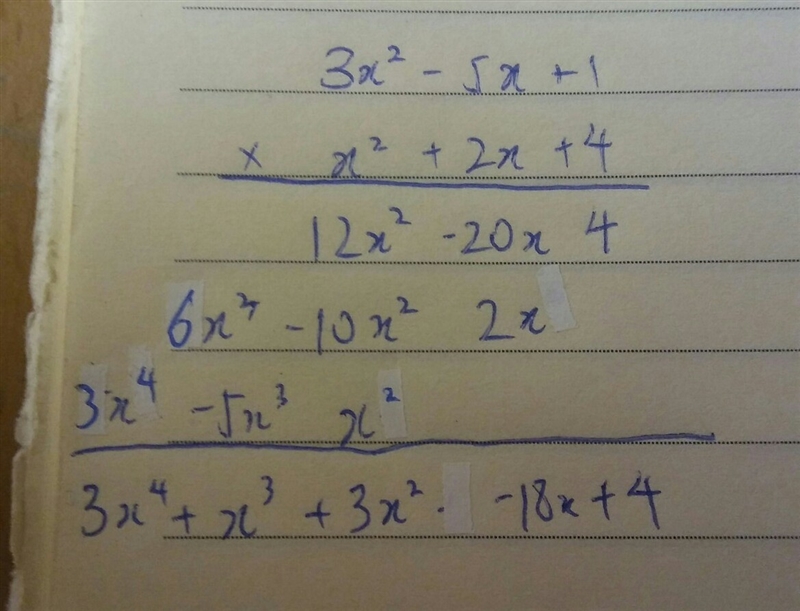 3x² - 5x + 1
× x² + 2x + 4
12x² -20x 4
6x³ -10x² 2x
3x⁴ -5x³ x²
3x⁴ + x³ + 3x² -18x + 4